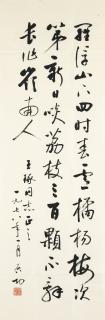 羅浮山下四時春盧橘楊梅次
第新日啖荔枝三百顆不辭
長作嶺南人
王琢同志正之
一九七八年一月啟功